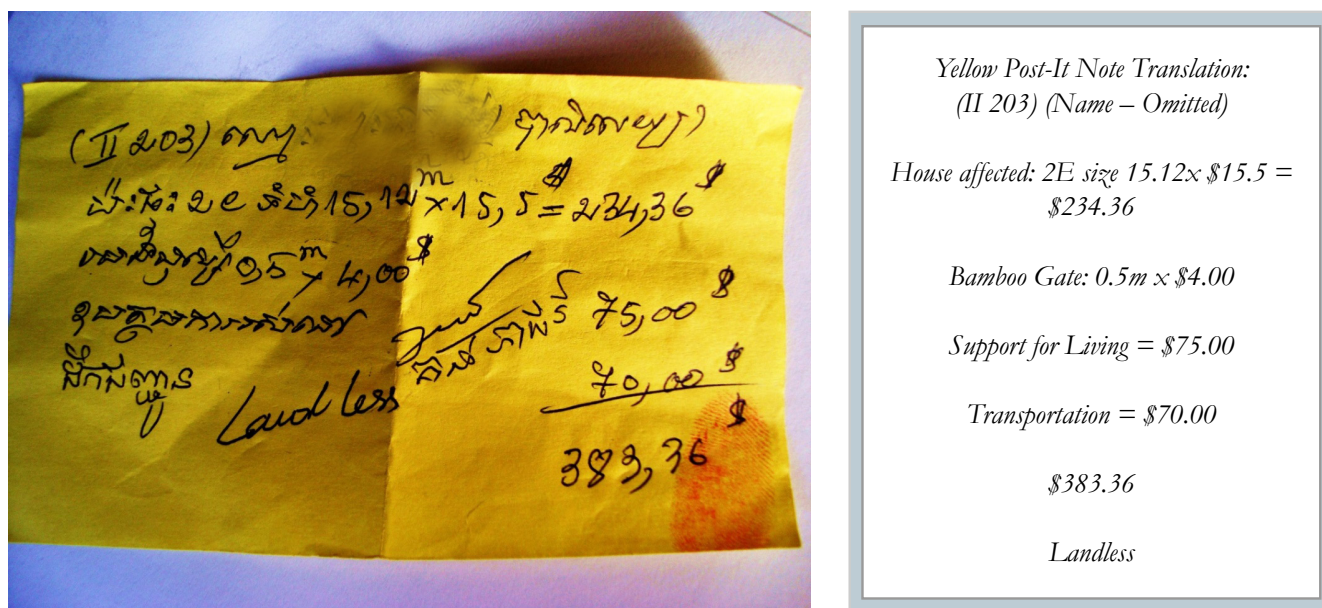 (II 203) ឈ្មោះ
ប៉ះផ្ទះ 2e ទំហំ 15,12m x 15,5$ = 234,36$
0,5m x 4,00$
75,00$
ដឹកជញ្ជូន 70,00$
Landless
383,36$
Yellow Post-It Note Translation:
(II 203) (Name – Omitted)
House affected: 2E size 15.12x $15.5 =
$234.36
Bamboo Gate: 0.5m x $4.00
Support for Living = $75.00
Transportation = $70.00
$383.36
Landless